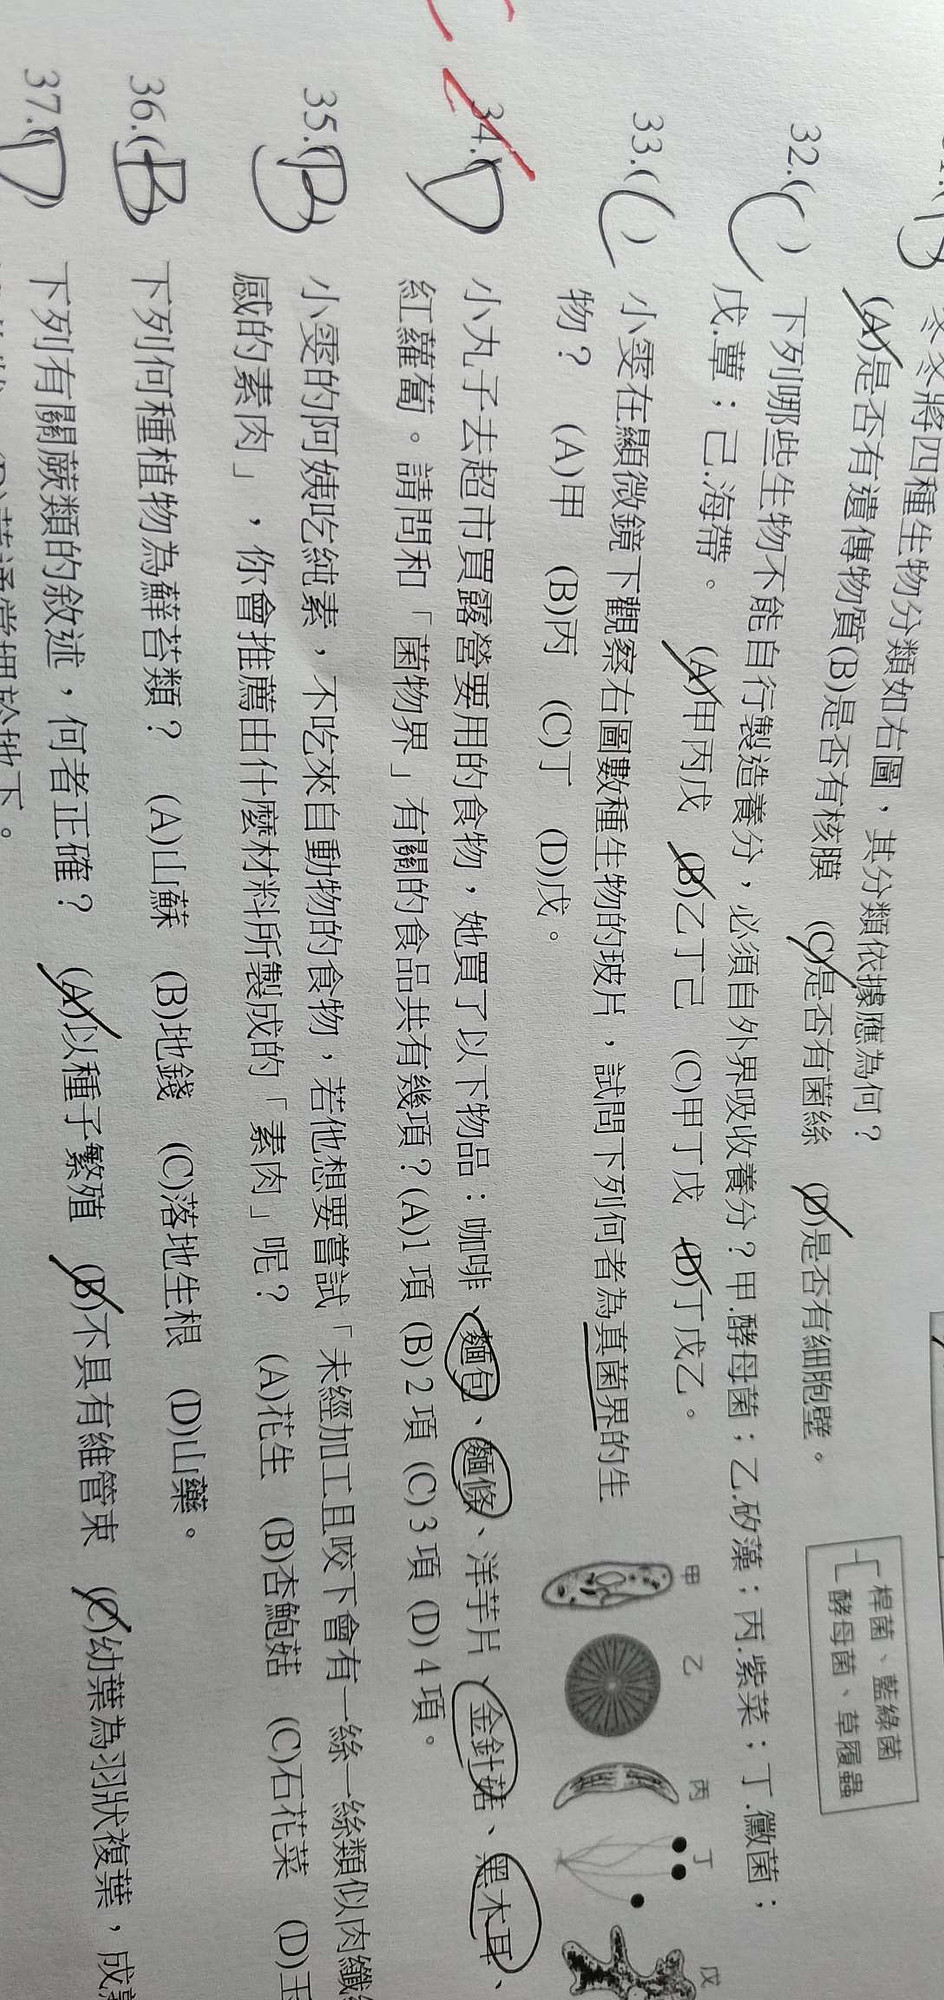 冬冬將四種生物分類如右圖，其分類依據應為何？
(A)是否有遺傳物質(B)是否有核膜 (C)是否有菌絲 (D)是否有細胞壁。
桿菌、藍綠菌
酵母菌、草履蟲
32.(C) 下列哪些生物不能自行製造養分，必須自外界吸收養分？甲.酵母菌；乙.矽藻；丙.紫菜；丁.黴菌；
戊.蕈；己.海帶。 (A)甲丙戊 (B)乙丁己 (C)甲丁戊 (D)丁戊乙。
33.(C) 小雯在顯微鏡下觀察右圖數種生物的玻片，試問下列何者為真菌界的生
物？ (A)甲 (B)丙 (C)丁 (D)戊。
甲 乙 丙 丁 戊
34.(D 小丸子去超市買露營要用的食物，她買了以下物品：咖啡、麵包、麵條、洋芋片、金針菇、黑木耳、
紅蘿蔔。請問和「菌物界」有關的食品共有幾項？(A)1 項 (B) 2 項 (C) 3 項 (D) 4 項。
35.(B) 小雯的阿姨吃純素，不吃來自動物的食物，若他想要嘗試「未經加工且咬下會有一絲一絲類似肉纖
感的素肉」，你會推薦由什麼材料所製成的「素肉」呢？ (A)花生 (B)杏鮑菇 (C)石花菜 (D)玉
36.(B) 下列何種植物為蘚苔類？ (A)山蘇 (B)地錢 (C)落地生根 (D)山藥。
37.(D) 下列有關蕨類的敘述，何者正確？ (A)以種子繁殖 (B)不具有維管束 (C)幼葉為羽狀複葉，成
(D)莖通常埋於地下。